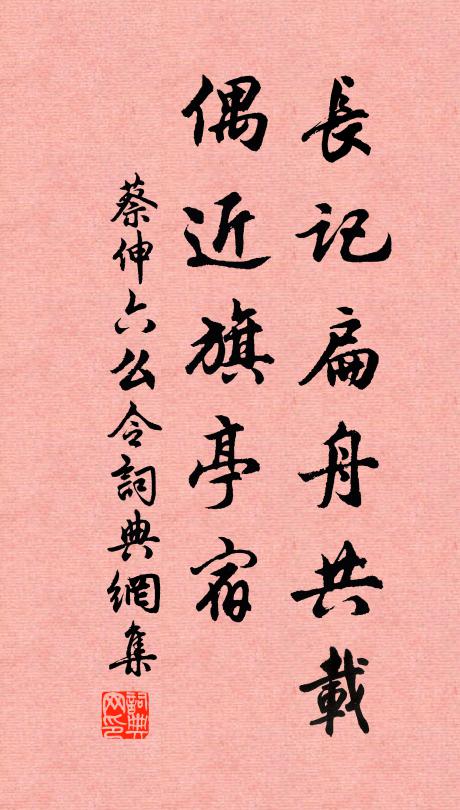 長記扁舟共載
偶近旗亭宿
蔡伸六么令詞典網集
詞典網印